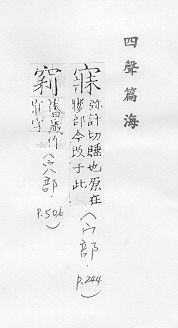 四聲篇海
彌計切睡也原在
部今改于此
(宀部.
P.244)
舊藏作
字
(穴部.
P.506)